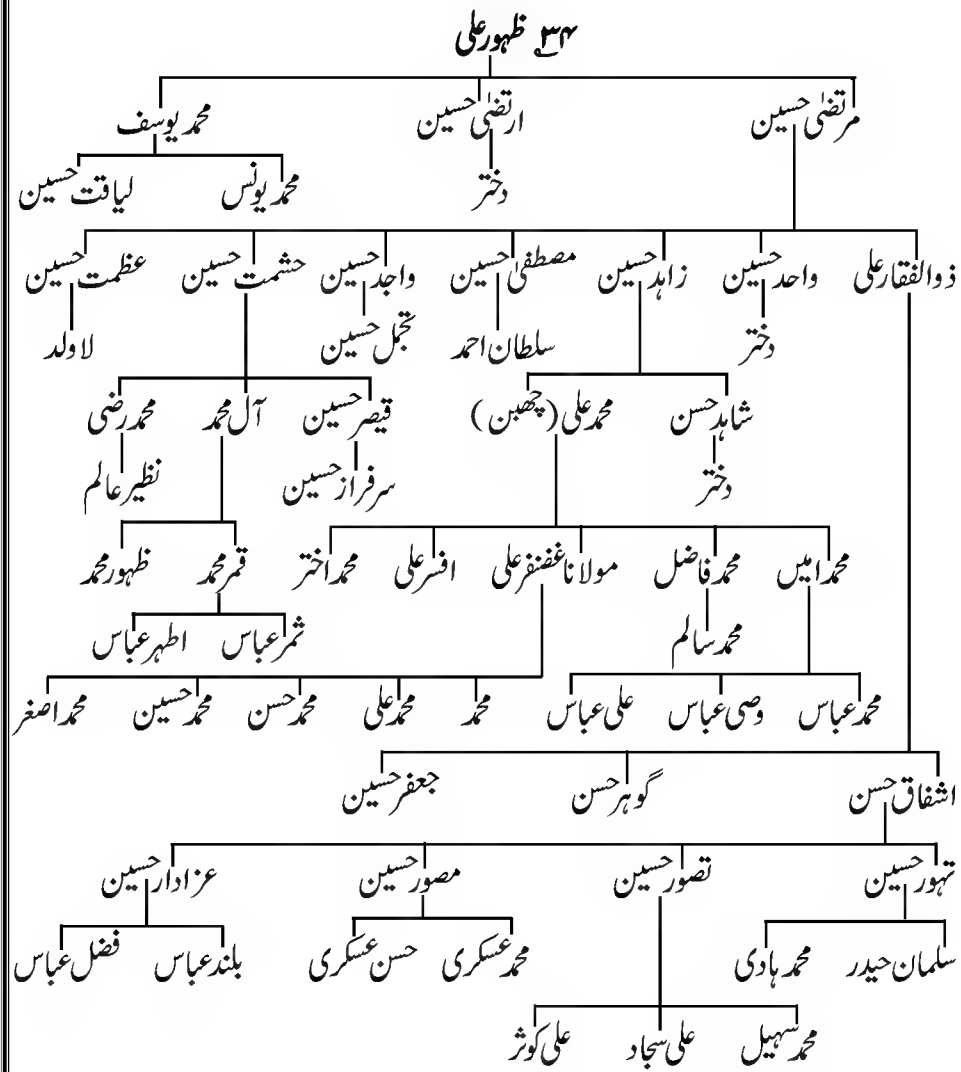 ۳۴؎ ظہور علی
مرتضیٰ حسین ارتضیٰ حسین محمد یوسف
دختر محمد یونس لیاقت حسین
ذوالفقار علی واحد حسین زاہد حسین مصطفیٰ حسین واجد حسین حشمت حسین عظمت حسین
دختر سلطان احمد تجمل حسین لاولد
شاہد حسن محمد علی (چھبن) قیصر حسین آل محمد محمد رضی
دختر سرفراز حسین نظیر عالم
محمد امیں محمد فاضل مولانا غضنفر علی افسر علی محمد اختر قمر محمد ظہور محمد
محمد سالم ثمر عباس اطہر عباس
محمد عباس وصی عباس علی عباس محمد محمد علی محمد حسن محمد حسین محمد اصغر
اشفاق حسن گوہر حسن جعفر حسین
تہور حسین تصور حسین مصور حسین عزادار حسین
سلمان حیدر محمد ہادی محمد عسکری حسن عسکری بلند عباس فضل عباس
محمد سہیل علی سجاد علی کوثر